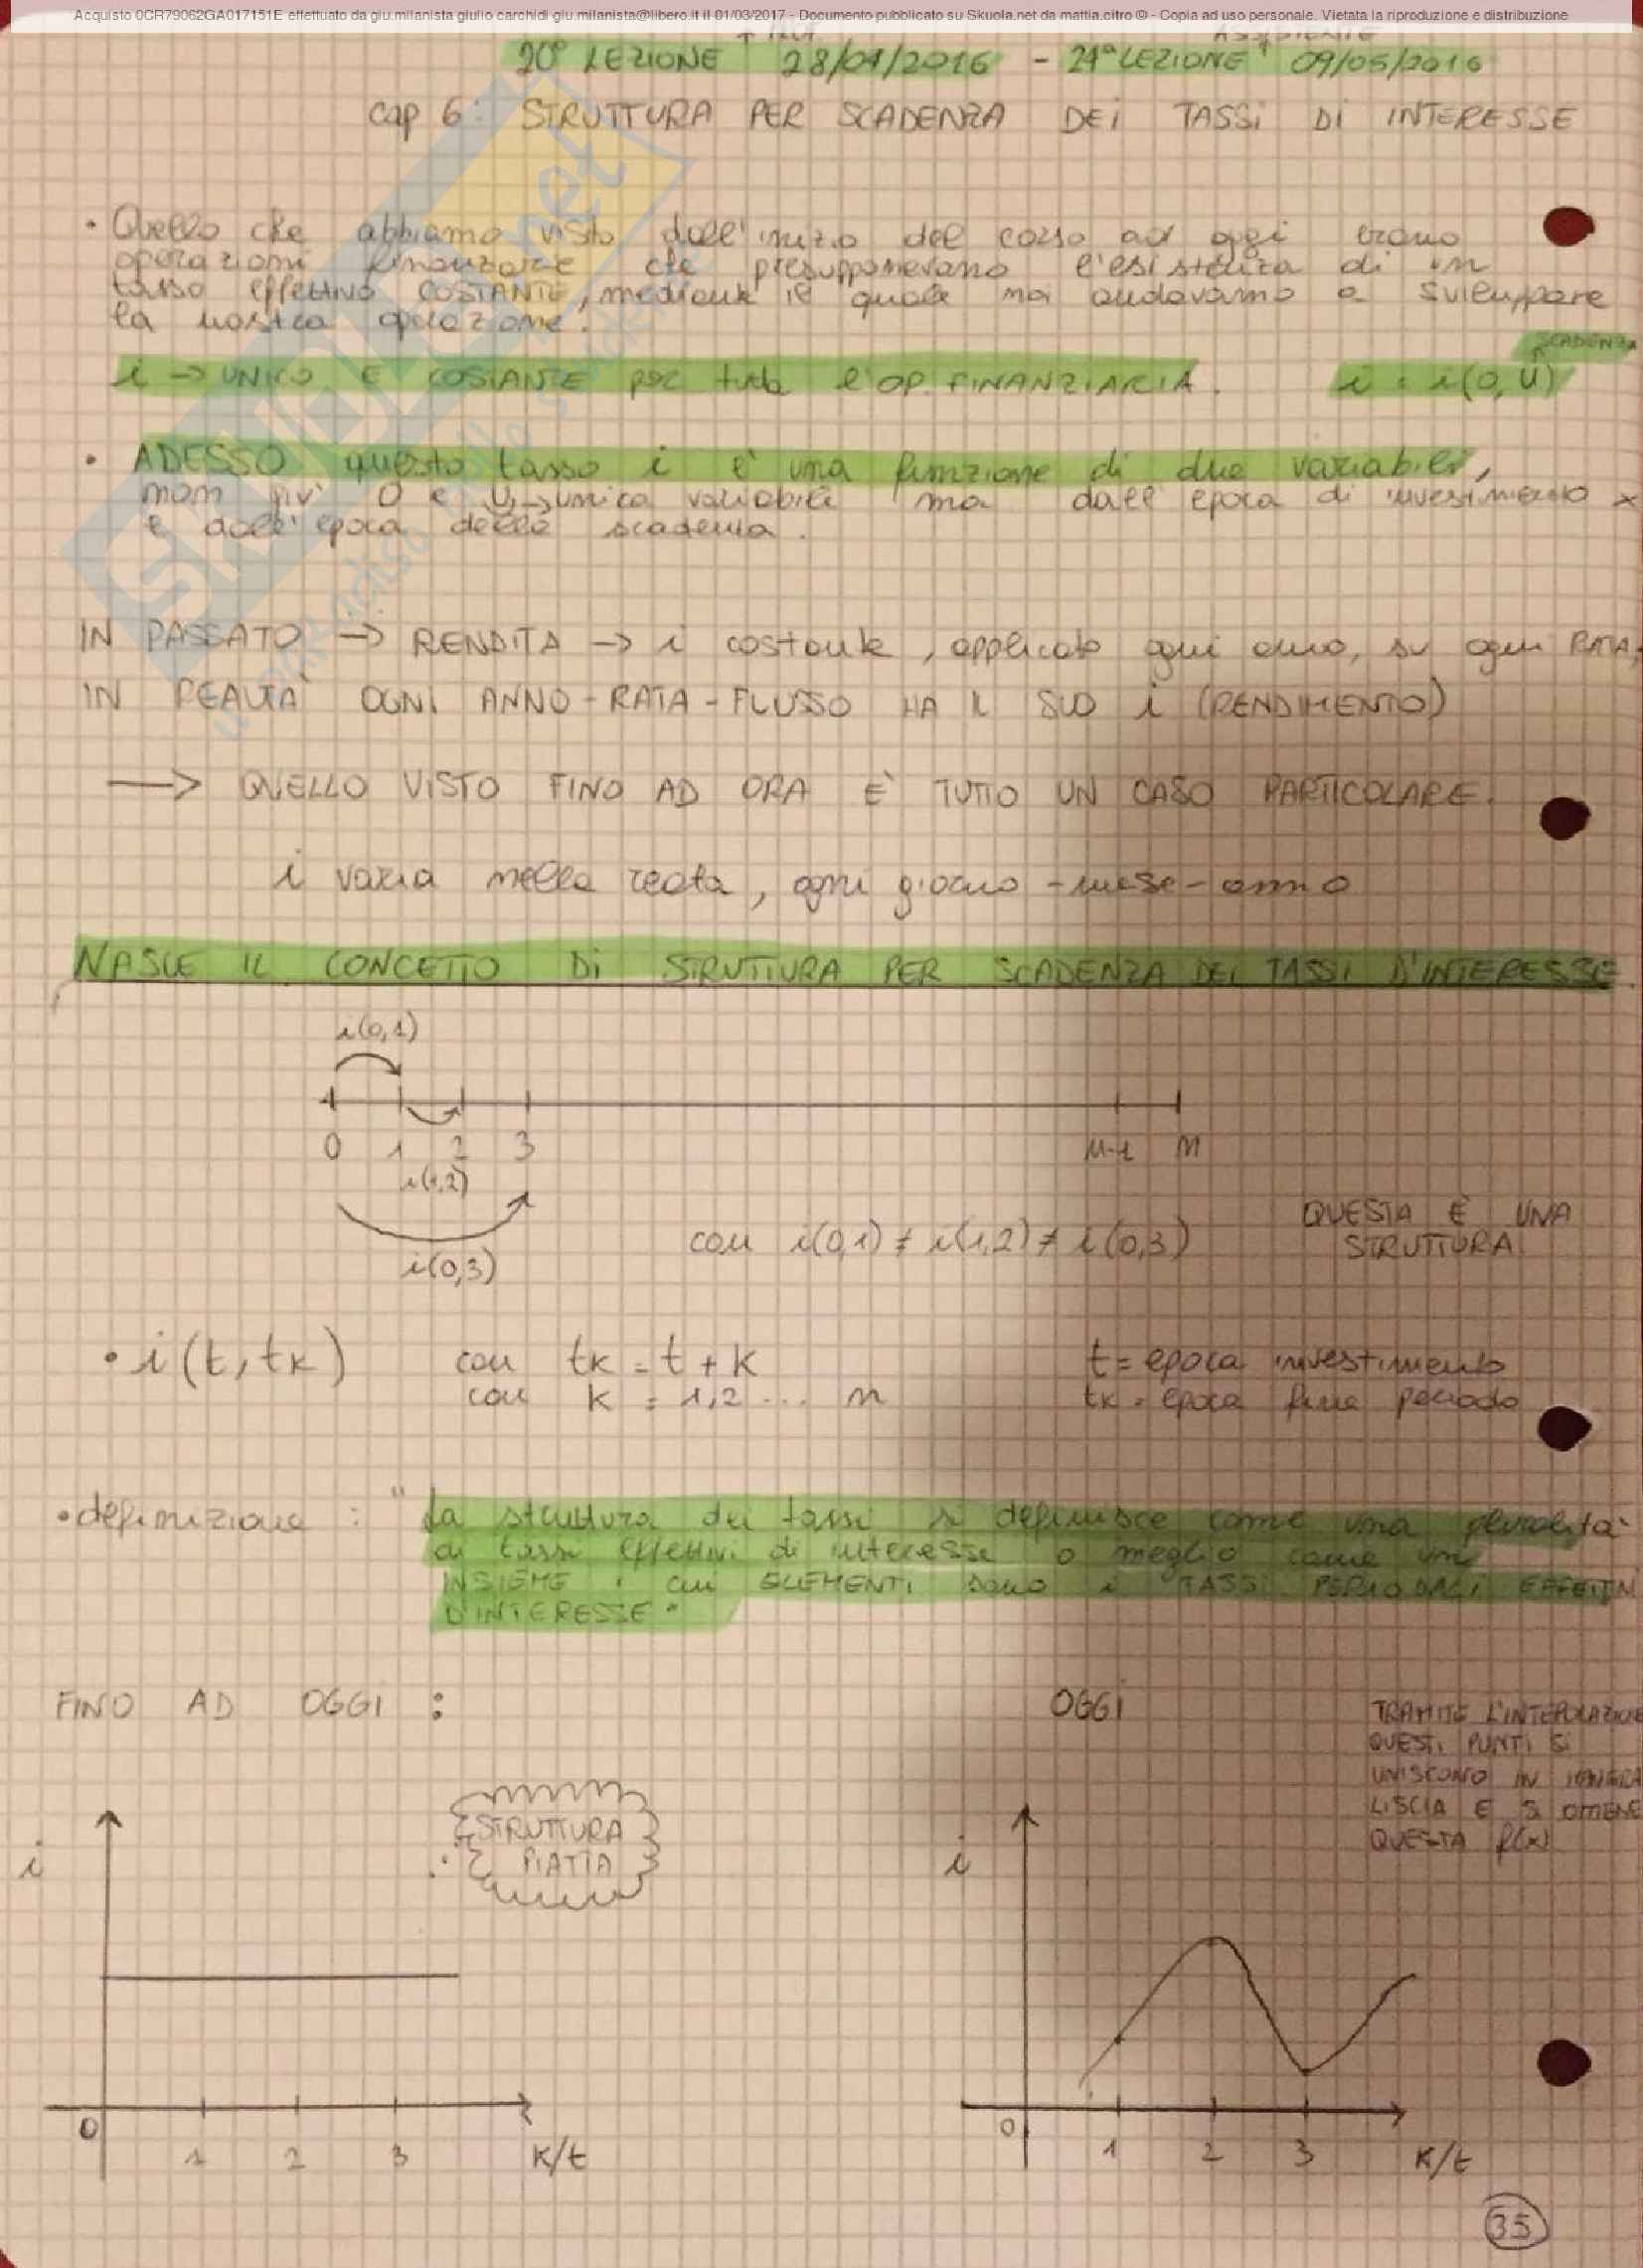 Acquisto 0CR79062GA017151E effettuato da giu.milanista giulio carchidi giu.milanista@libero.it il 01/03/2017 - Documento pubblicato su Skuola.net da mattia.citro © - Copia ad uso personale. Vietata la riproduzione e distribuzione
20° LEZIONE 28/04/2016 - 21ª LEZIONE 09/05/2016
cap 6: STRUTTURA PER SCADENZA DEI TASSI DI INTERESSE
• Quello che abbiamo visto dall'inizio del corso ad oggi erano
operazioni finanziarie che presupponevano l'esistenza di un
tasso effettivo COSTANTE, mediante il quale noi andavamo a sviluppare
la nostra operazione.
SCADENZA
i → UNICO E COSTANTE per tutta l'OP. FINANZIARIA. i = i(0, u)
• ADESSO questo tasso i è una funzione di due variabili,
non più 0 e u → unica variabile ma dall'epoca di investimento x
e dall'epoca della scadenza.
IN PASSATO → RENDITA → i costante, applicato ogni anno, su ogni RATA;
IN REALTÀ OGNI ANNO - RATA - FLUSSO HA IL SUO i (RENDIMENTO)
→ QUELLO VISTO FINO AD ORA È TUTTO UN CASO PARTICOLARE.
i varia nella realtà, ogni giorno - mese - anno
NASCE IL CONCETTO DI STRUTTURA PER SCADENZA DEI TASSI D'INTERESSE.
i(0,1)
0 1 2 3 n-1 n
i(1,2)
i(0,3)
con i(0,1) ≠ i(1,2) ≠ i(0,3)
QUESTA È UNA
STRUTTURA
• i(t, tk) con tk = t + k t = epoca investimento
con k = 1,2 ... n tk = epoca fine periodo
• definizione : "La struttura dei tassi si definisce come una pluralità
di tassi effettivi di interesse o meglio come un
INSIEME i cui ELEMENTI sono i TASSI PERIODALI EFFETTIVI
D'INTERESSE"
FINO AD OGGI :
STRUTTURA
PIATTA
i
0 1 2 3 K/t
OGGI
TRAMITE L'INTEPOLAZIONE
QUESTI PUNTI SI
UNISCONO IN MANIERA
LISCIA E SI OTTIENE
QUESTA f(x)
i
0 1 2 3 K/t
35